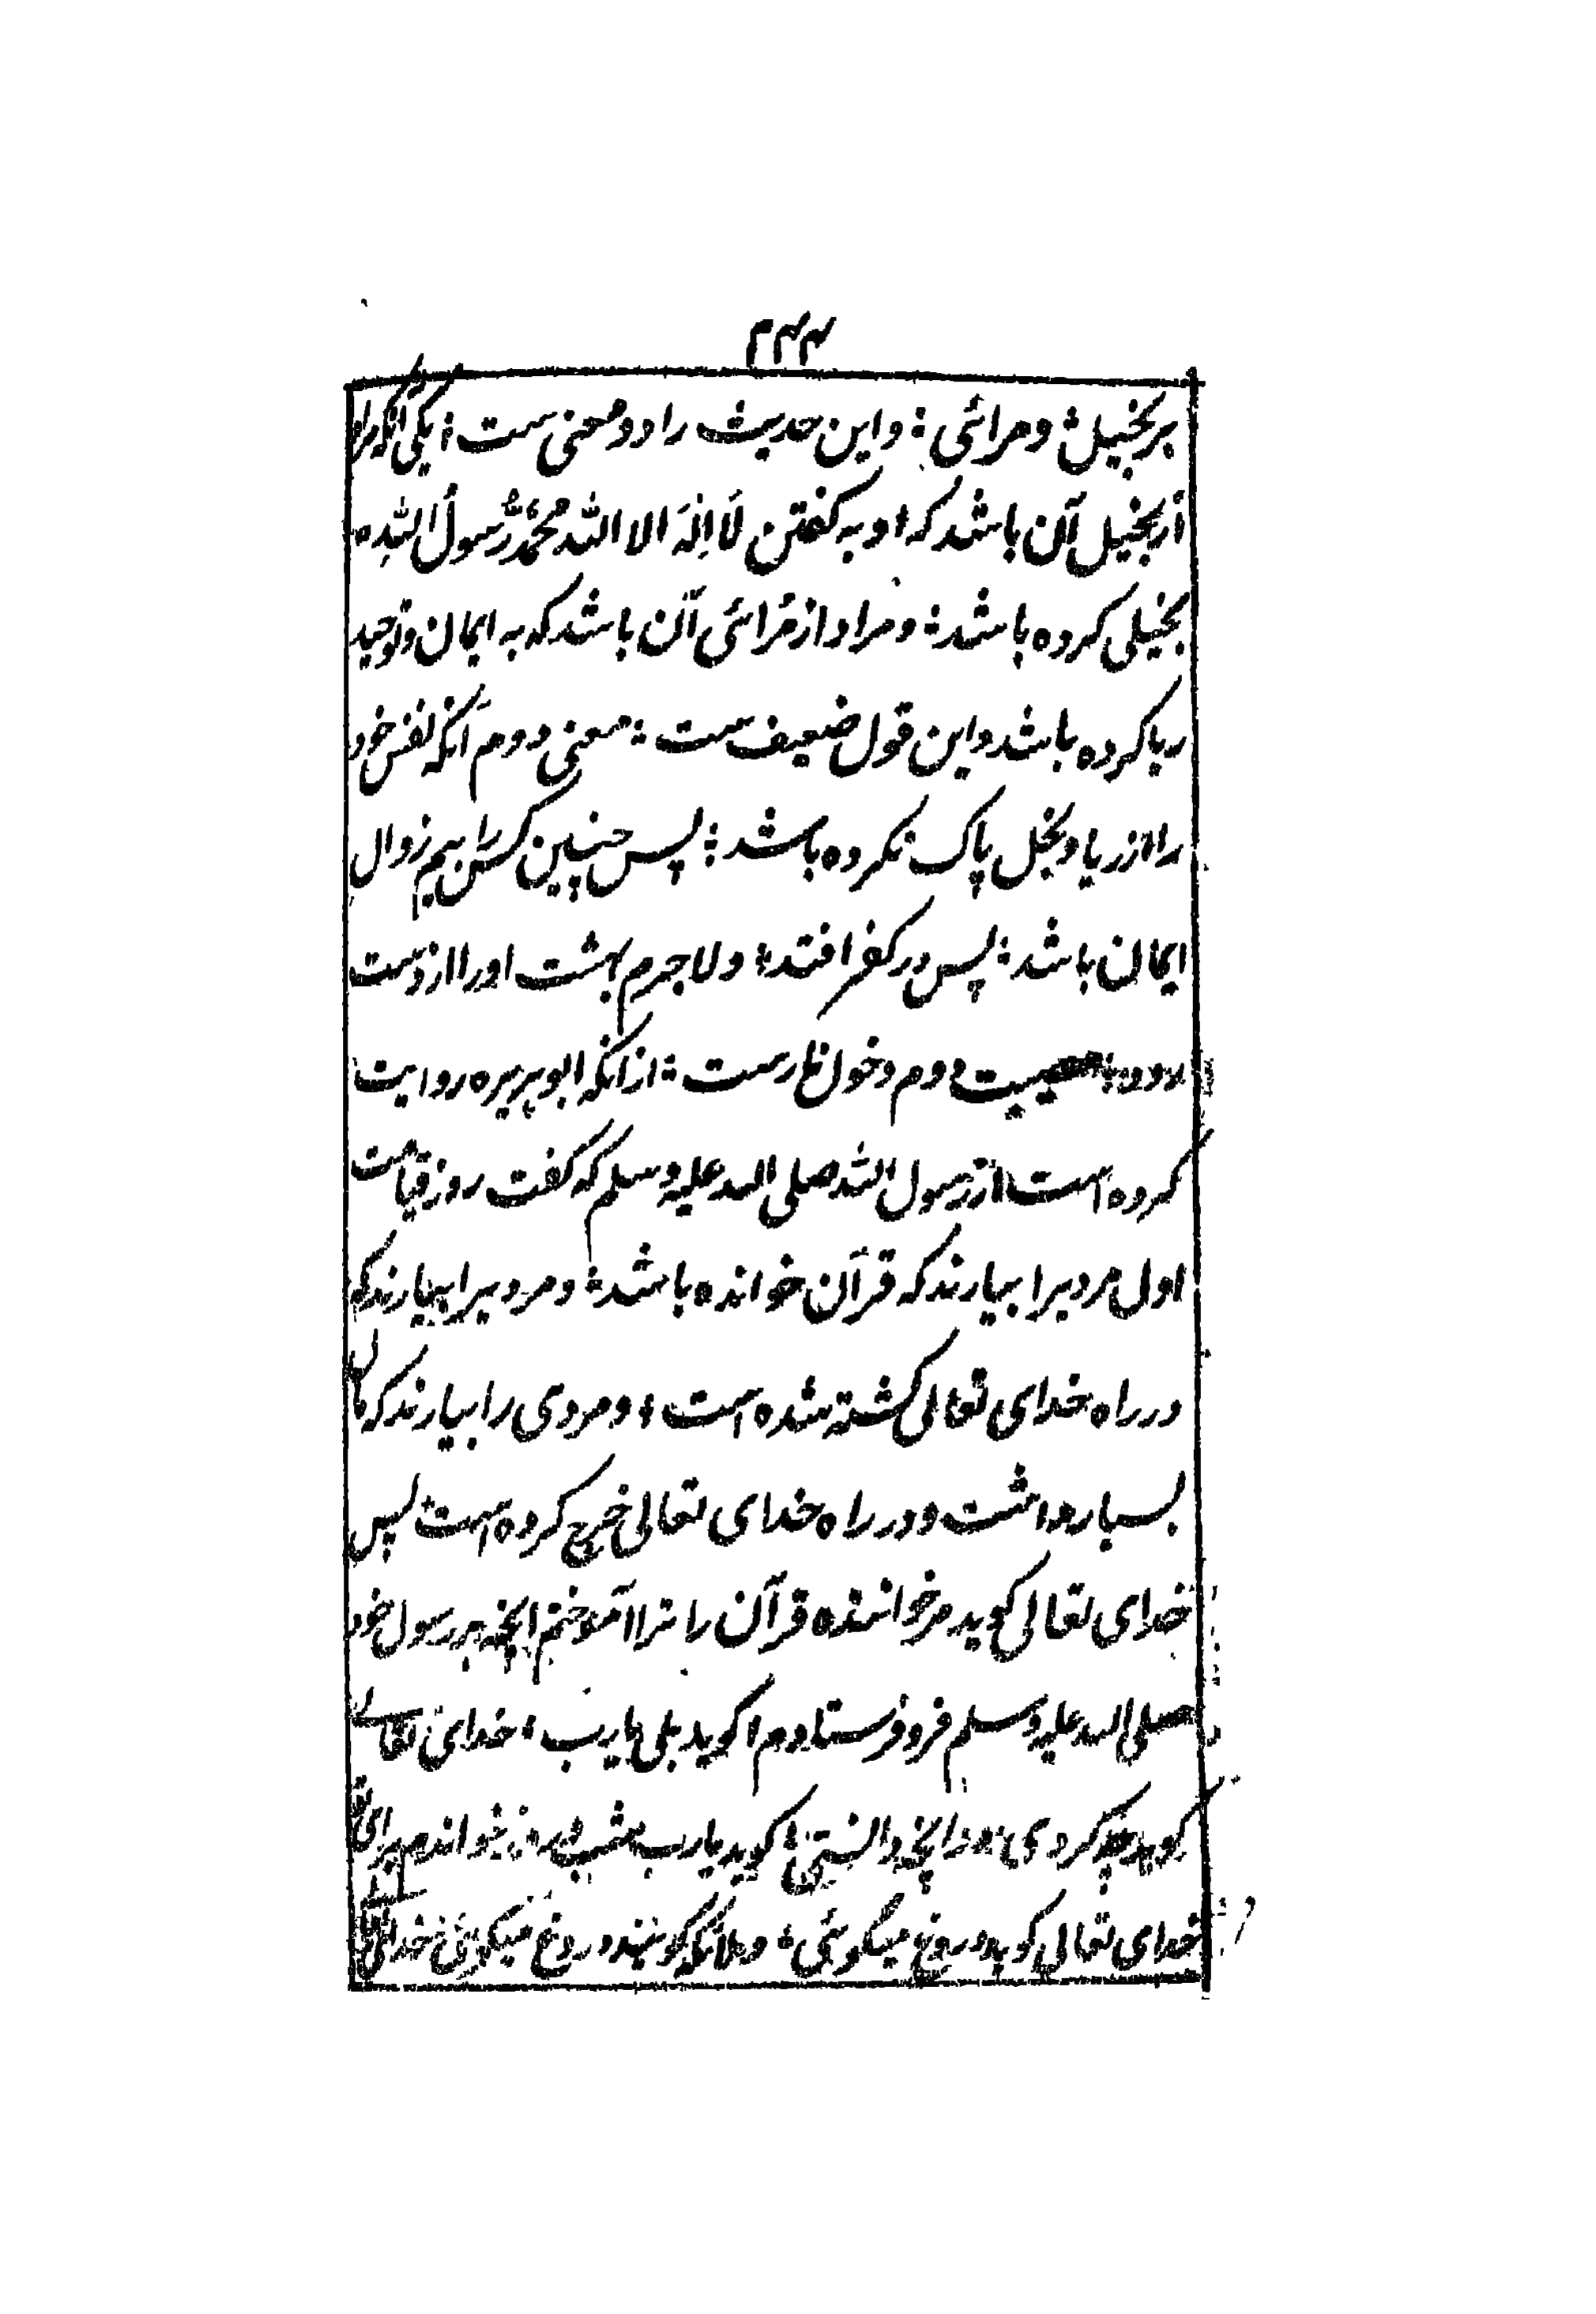 ۲۴۴
بر بخیل؛ و مرائی؛ و این حدیث را دو معنی ست؛ یکی آنکه مراد
از بخیل آن باشد که او به کفتن لَا اِلٰهَ الا الله محمدٌ رَّسولُ اللهِ
بخیلی کرده باشد؛ و مراد از مُرائی آن باشد که به ایمان و توحید
ریا کرده باشد و این قول ضعیف ست؛ معنی دوم آنکه نفس خود
را از ریا و بخل پاک نکرده باشد؛ پس چنین کس را بیم زوال
ایمان باشد؛ پس در کفر افتد؛ و لاجرم بهشت او را از دست
مصیبت دوم دخول نار ست؛ از انکه ابوهریره روایت
کرده است از رسول الله صلی الله علیه وسلم که کفت روز قیامت
اول مردیرا بیارند که قرآن خوانده باشد؛ و مردیرا بیارند که
در راه خدای تعالی کشته شده است؛ و مردی را بیارند که مال
بسیار داشت و در راه خدای تعالی خرچ کرده است پس
خدای تعالی کوید مر خواننده قرآن را ترا آموختم انچه بر رسول خود
صلی الله علیه وسلم فرو فرستادم؛ کوید بلی یا رب؛ خدای تعالی
کوید چه کردی در انچه دانستی؛ کوید یا رب شب و روز خواندم برای تو
خدای تعالی کوید دروغ میگوئی؛ و ملائکه کویند دروغ میکوئی خدای تعالی